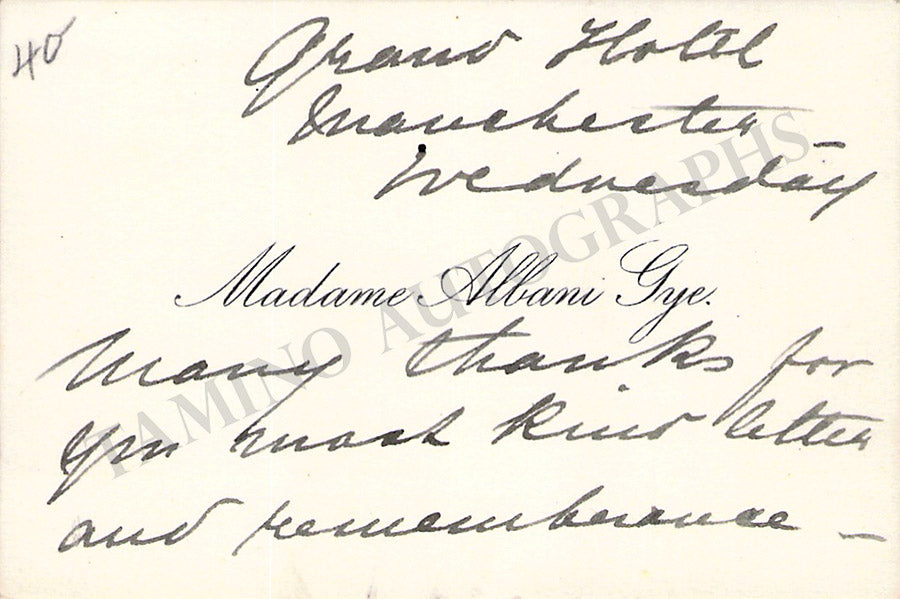 40
Grand Hotel
Manchester
Wednesday
Madame Albani Gye.
Many thanks for
yr most kind letter
and rememberance –
TAMINO AUTOGRAPHS